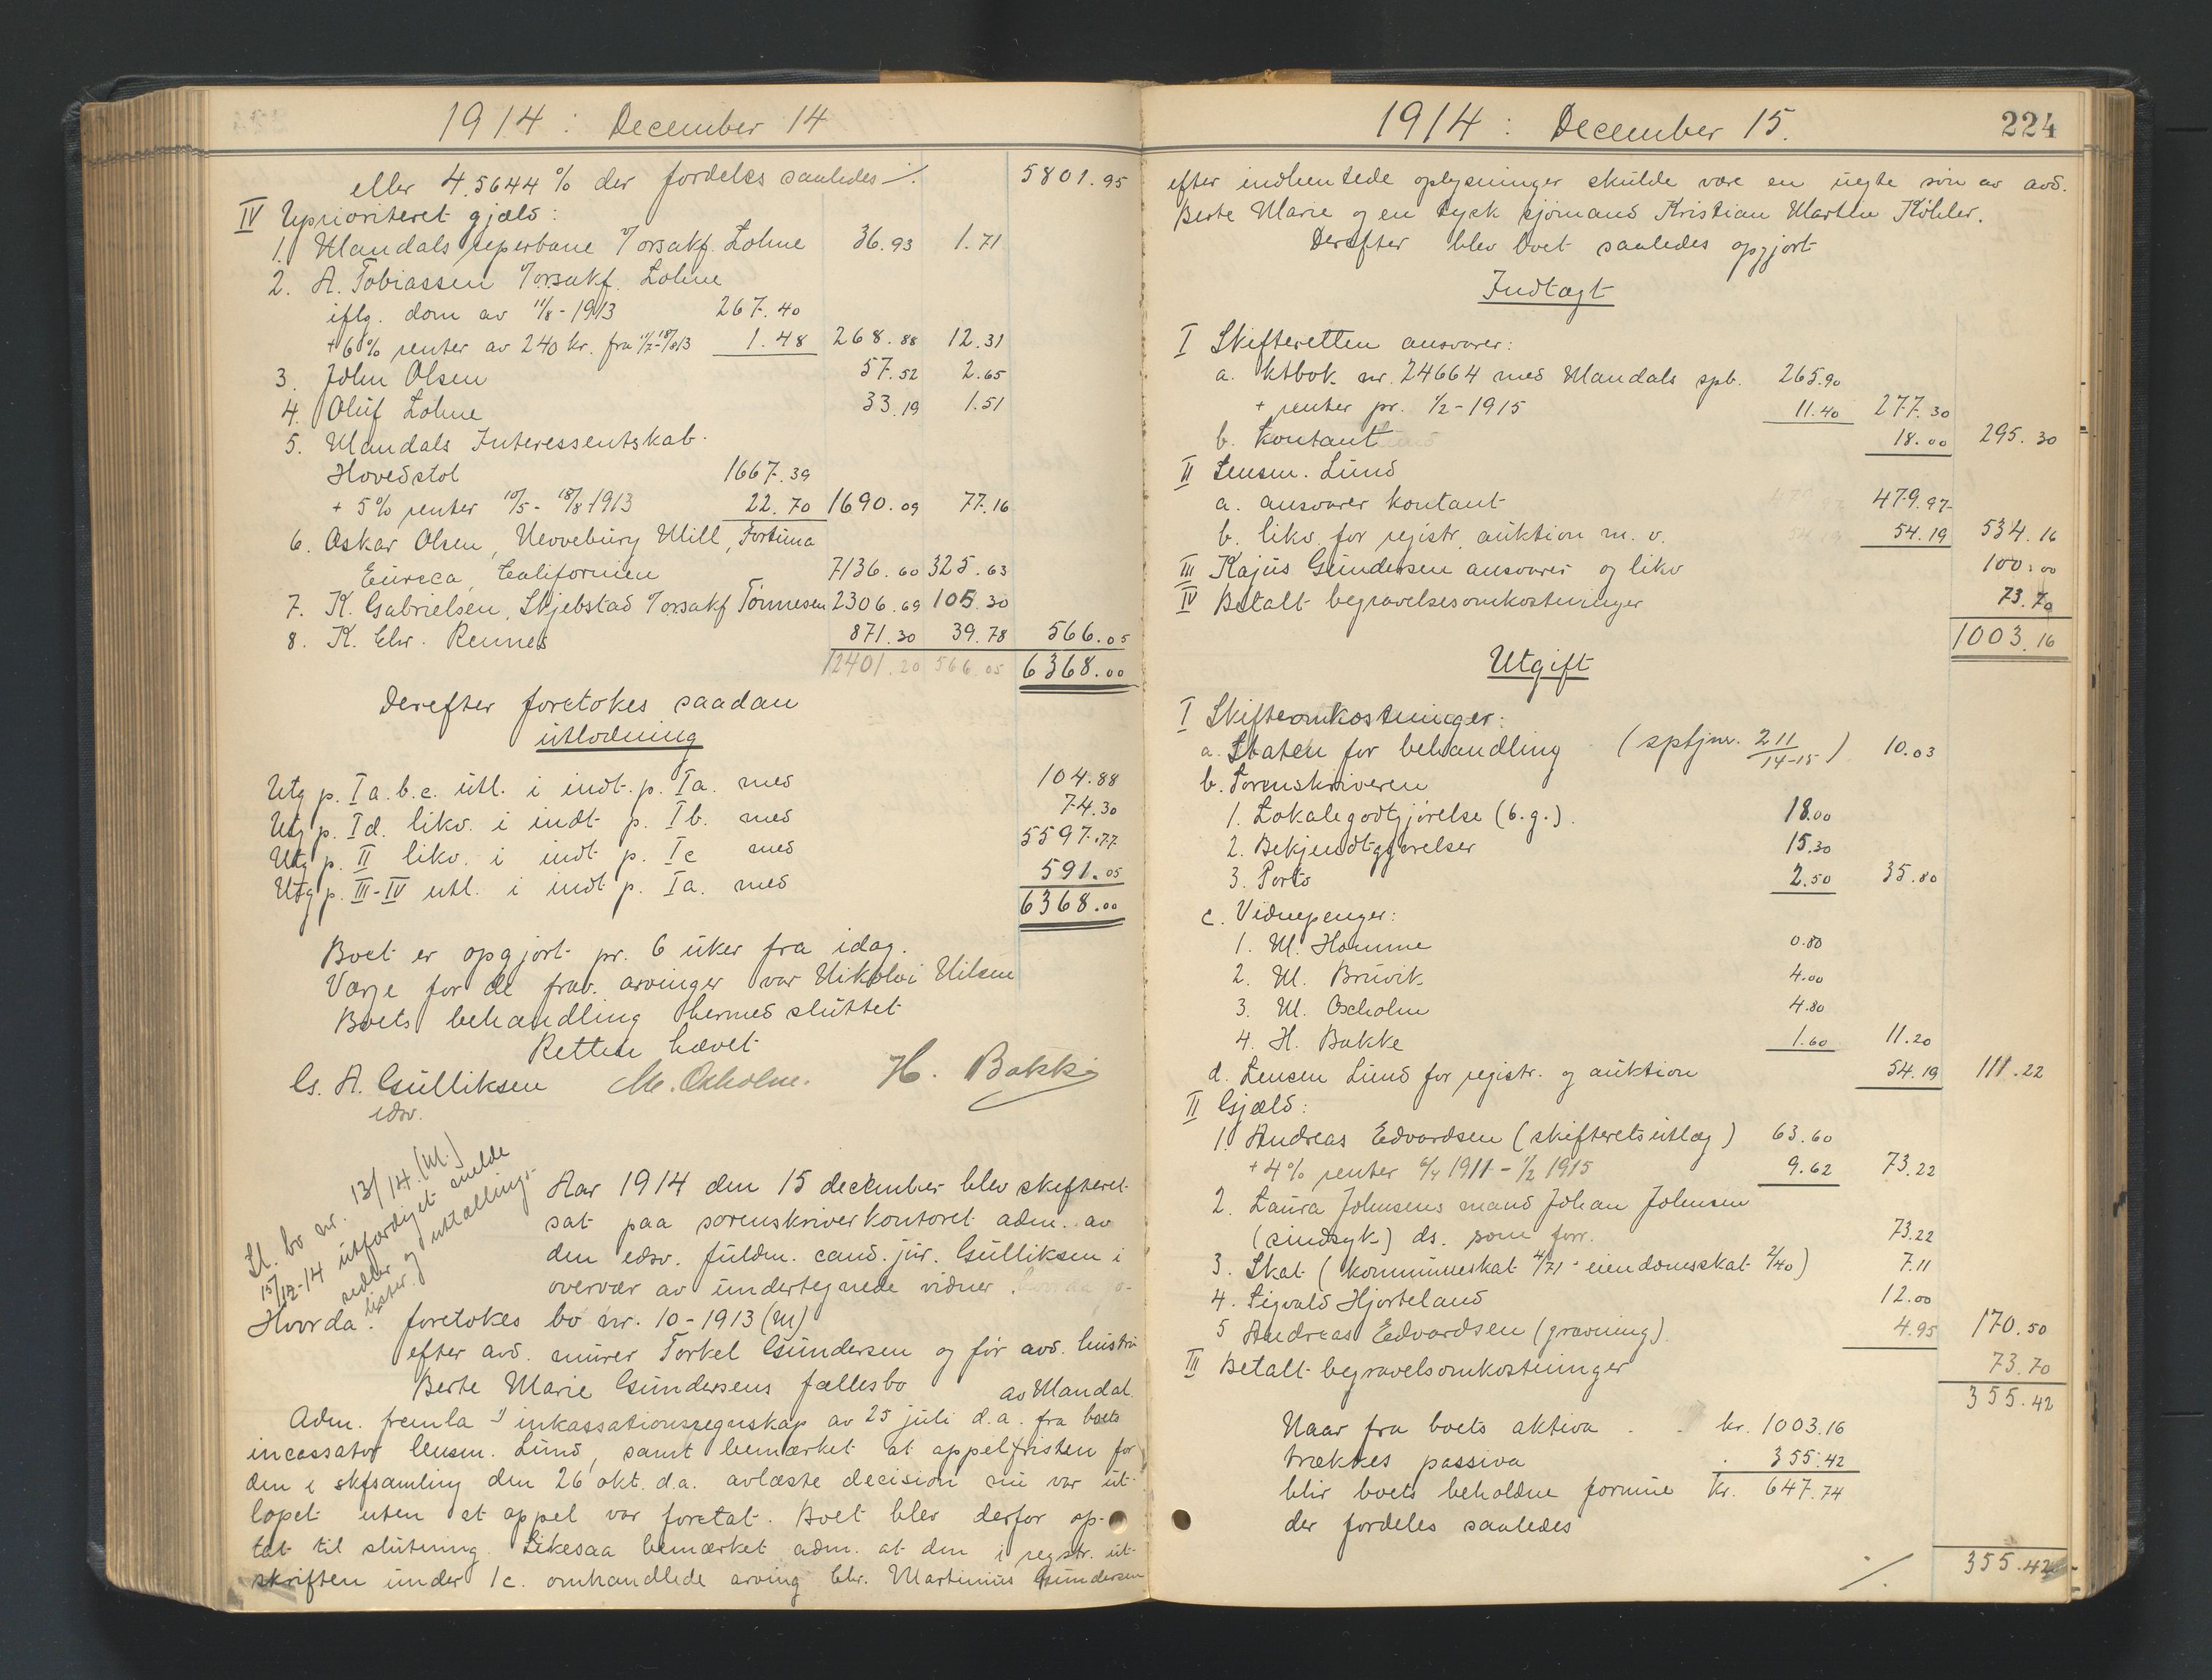 1914: December 14
eller 4.5644 % der fordeles saaledes ./. 5801.95
IV Uprioriteret gjæld:
1. Mandals reperbane v/orsakf. Lohne 36.93 1.71
2. A. Tobiassen v/orsakf. Lohne
iflg. dom av 11/8-1913 267.40
+ 6% renter av 240 kr. fra 11/7-18/8 13 1.48 268.88 12.31
3. John Olsen 57.52 2.65
4. Oluf Lohne 33.19 1.51
5. Mandals Interessentskab.
Hovedstol 1667.39
+ 5% renter 10/5 - 18/8 1913 22.70 1690.09 77.16
6. Oskar Olsen, Newebury Mill, Fortuna
Eureca, Californien 7136.60 325.63
7. K. Gabrielsen, Skjebstad v/orsakf Tønnesen 2306.69 105.30
8. K. Chr. Rennes 871.30 39.78 566.05
12401.20 566.05 6368.00
Derefter foretokes saadan
utlodning
Utg p. I a.b.c. utl. i indt. p. Ia. med 104.88
Utg p. I d. likv. i indt p. Ib. med 74.30
Utg p. II likv. i indt p. Ic med 5597.77
Utg p. III-IV utl. i indt p. Ia. med 591.05
6368.00
Boet er opgjort pr. 6 uker fra idag.
Værje for de frav. arvinger var Nikolai Nilsen
Boets behandling hermed sluttet
Retten hævet
Cs. A. Gulliksen M. Oxholm. H. Bakke
edsv.
Sl. bo nr. 13/14.(M.)
15/12-14 utfærdiget melde
sedler og uttællings-
lister.
Aar 1914 den 15 december blev skifteret
sat paa sorenskriverkontoret adm. av
den edsv. fuldm. cand. jur. Gulliksen i
overvær av undertegnede vidner.
Hvorda: foretokes bo nr. 10-1913 (M)
efter avd. murer Torkel Gundersen og før avd. hustru
Berte Marie Gundersens fællesbo av Mandal.
Adm. fremla 1) inkassationsregnskap av 25 juli d.a. fra boets
incassator lensm. Lund, samt bemærket at appelfristen for
den i skifsamling den 26 okt. d.a. avlæste decision nu var ut-
løpet uten at appel var foretat. Boet blev derfor op-
tat til slutning. Likesaa bemærket adm. at den i registr. ut-
skriften under 1c. omhandlede arving Chr. Martinius Gundersen
1914: December 15. 224
efter indhentede oplysninger skulde være en uegte søn av avd.
Berte Marie og en tysk sjømand Kristian Martin Köhler.
Derefter blev boet saaledes opgjort
Indtægt
I Skifteretten ansvarer:
a. ktbok nr. 24664 med Mandals spb. 265.90
+ renter pr. 1/2-1915 11.40 277.30
b. kontant 18.00 295.30
II Lensm. Lund
a. ansvarer kontant 479.97
b. likv. for registr. auktion m.v. 54.19 534.16
III Kajus Gundersen ansvarer og likv 100.00
IV Betalt begravelsesomkostninger 73.70
1003.16
Utgift
I Skifteomkostninger:
a. Staten for behandling (sptjnr. 211/14-15) 10.03
b. Sorenskriveren
1. Lokalegodtgjørelse (6.g.). 18.00
2. Bekjendtgjørelser 15.30
3. Porto 2.50 35.80
c. Vidnepenger:
1. M. Homme 0.80
2. M. Bruvik 4.00
3. M. Oxholm 4.80
4. H. Bakke 1.60 11.20
d. Lensm Lund for registr. og auktion 54.19 111.22
II Gjæld:
1. Andreas Edvardsen (skifteretsutlæg) 63.60
+ 4% renter 1911 - 1/2 1915 9.62 73.22
2. Laura Johnsens mand Johan Johnsen
(sindsyk) ds. som forr. 73.22
3. Skat (kommuneskat 4/71 - eiendomsskat 2/40) 7.11
4. Sigvald Hjorteland 12.00
5 Andreas Edvardsen (gravning). 4.95 170.50
III Betalt begravelsomkostninger 73.70
355.42
Naar fra boets aktiva . . kr. 1003.16
trækkes passiva . 355.42
blir boets beholdne formue kr. 647.74
der fordeles saaledes
./. 355.42